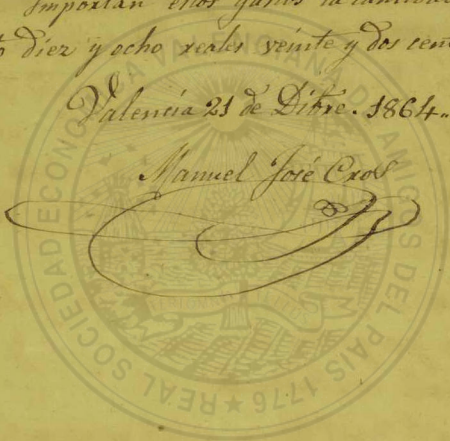 Importan estos gastos la cantidad
diez y ocho reales veinte y dos cen
Valencia 21 de Dibre. 1864.
Manuel José Cros
REAL SOCIEDAD ECONOMICA VALENCIANA DE AMIGOS DEL PAIS 1776